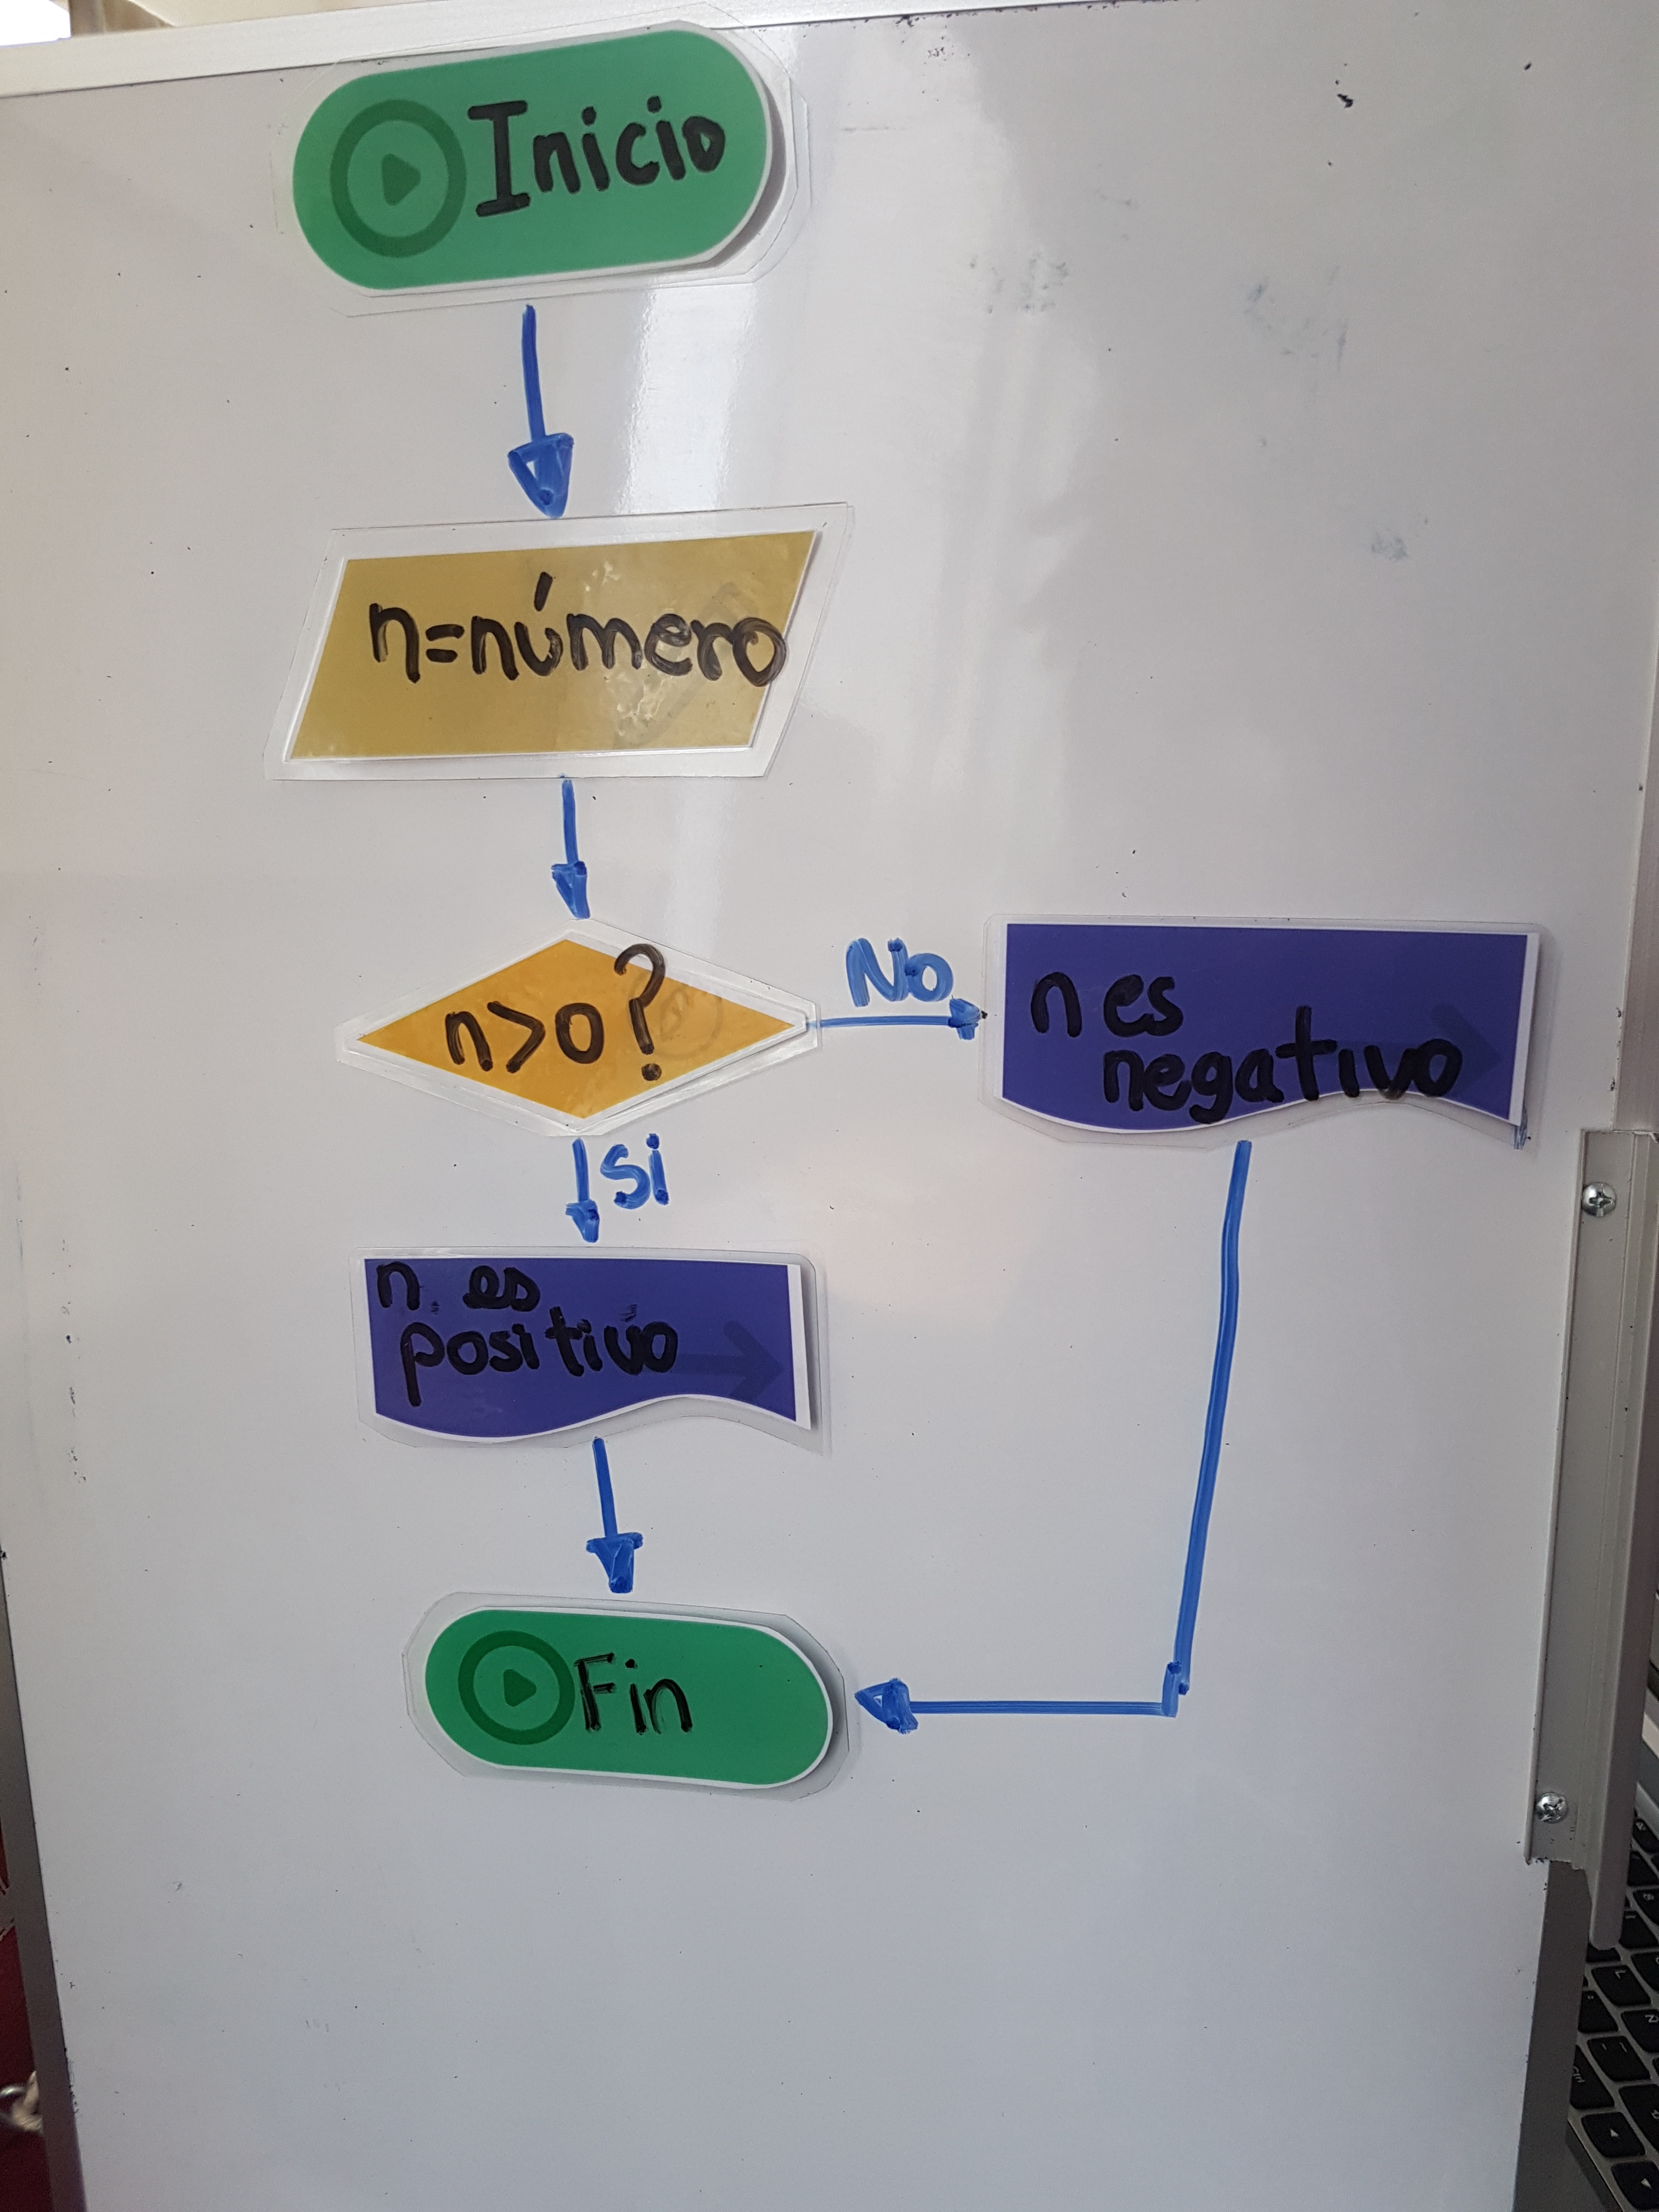 Inicio
n=número
n>0?
No
n es
negativo
si
n es
positivo
Fin